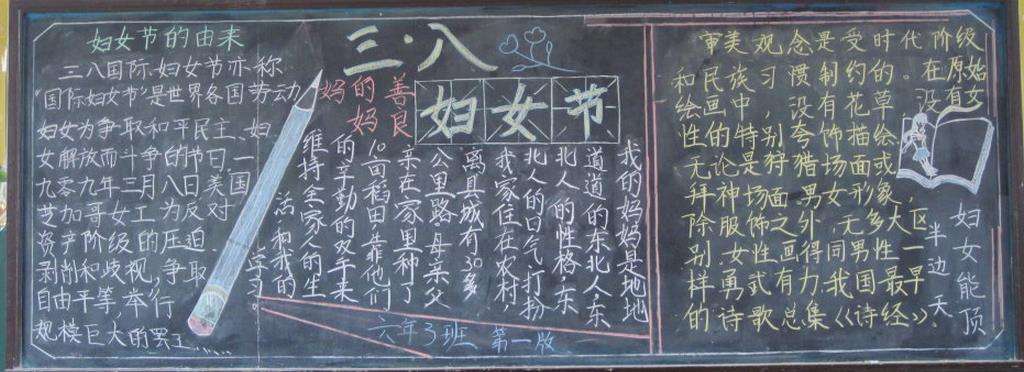 妇女节的由来
三八国际妇女节亦称
"国际妇女节"是世界各国劳动
妇女为争取和平民主、妇
女解放而斗争的节日,一
九零九年三月八日美国
芝加哥女工为反对
资产阶级的压迫、
剥削和歧视,争取
自由平等,举行
规模巨大的罢工……
三·八
妇女节
妈妈的善良
我的妈妈是地地
道道的东北人,东
北人的性格,东
北人的口气,打扮
我家住在农村,
离县城有30多
公里路,母亲父
亲在家里种了
10亩稻田,靠他们
的辛勤的双手来
维持全家人的生
活和我的
学习。
六年3班 第一版
审美观念是受时代阶级
和民族习惯制约的。在原始
绘画中,没有花草没有女
性的特别夸饰描绘
无论是狩猎场面或
拜神场面,男女形象,
除服饰之外,无多大区
别,女性画得同男性一
样勇武有力.我国最早
的诗歌总集《诗经》、
妇女能顶
半边天